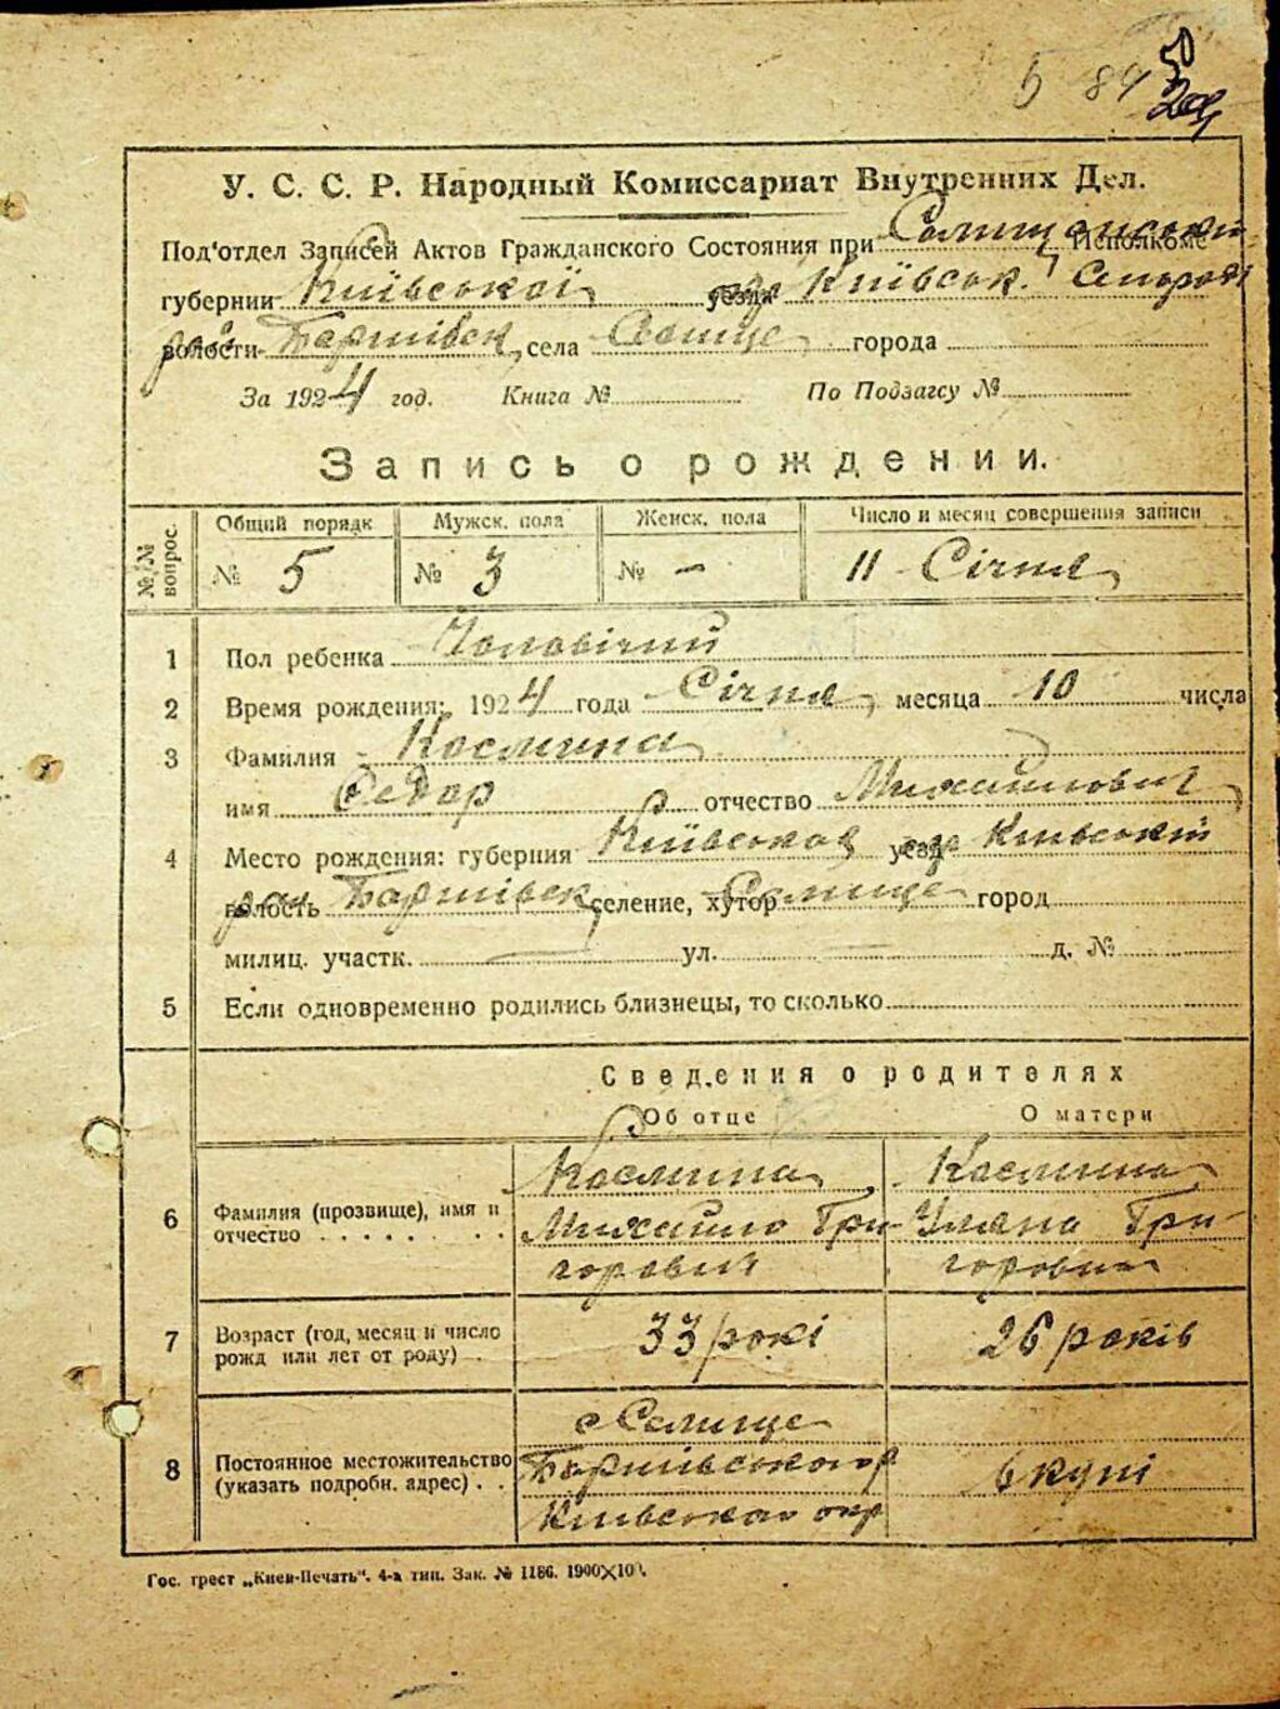 5 84
У. С. С. Р. Народный Комиссариат Внутренних Дел.
Под'отдел Записей Актов Гражданского Состояния при Исполкоме
губернии Київської уезда Київськ.
волости села Селище города
За 1924 год. Книга № По Подзагсу №
Запись о рождении.
№№ вопрос. Общий порядк Мужск. пола Женск. пола Число и месяц совершения записи
№ 5 № 3 № - 11 Січня
1 Пол ребенка Чоловічий
2 Время рождения: 1924 года Січня месяца 10 числа
3 Фамилия
имя Федор отчество Михайлович
4 Место рождения: губерния Київської уезд Київський
волость селение, хутор Селище город
милиц. участк. ул. д. №
5 Если одновременно родились близнецы, то сколько
Сведения о родителях
Об отце О матери
6 Фамилия (прозвище), имя и
отчество
Михайло Гри- Уляна Гри-
горович горовна
7 Возраст (год, месяц и число
рожд или лет от роду)
33 рокі 26 років
8 Постоянное местожительство
(указать подробн. адрес)
с Селище
Київського окр
вкупі
Гос. трест „Киев-Печать". 4-а тип. Зак. № 1186. 1900×100.